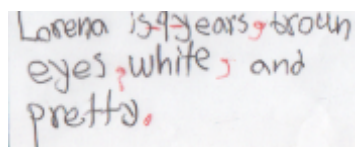 Lorena is 9 years, broun
eyes, white, and
pretty.